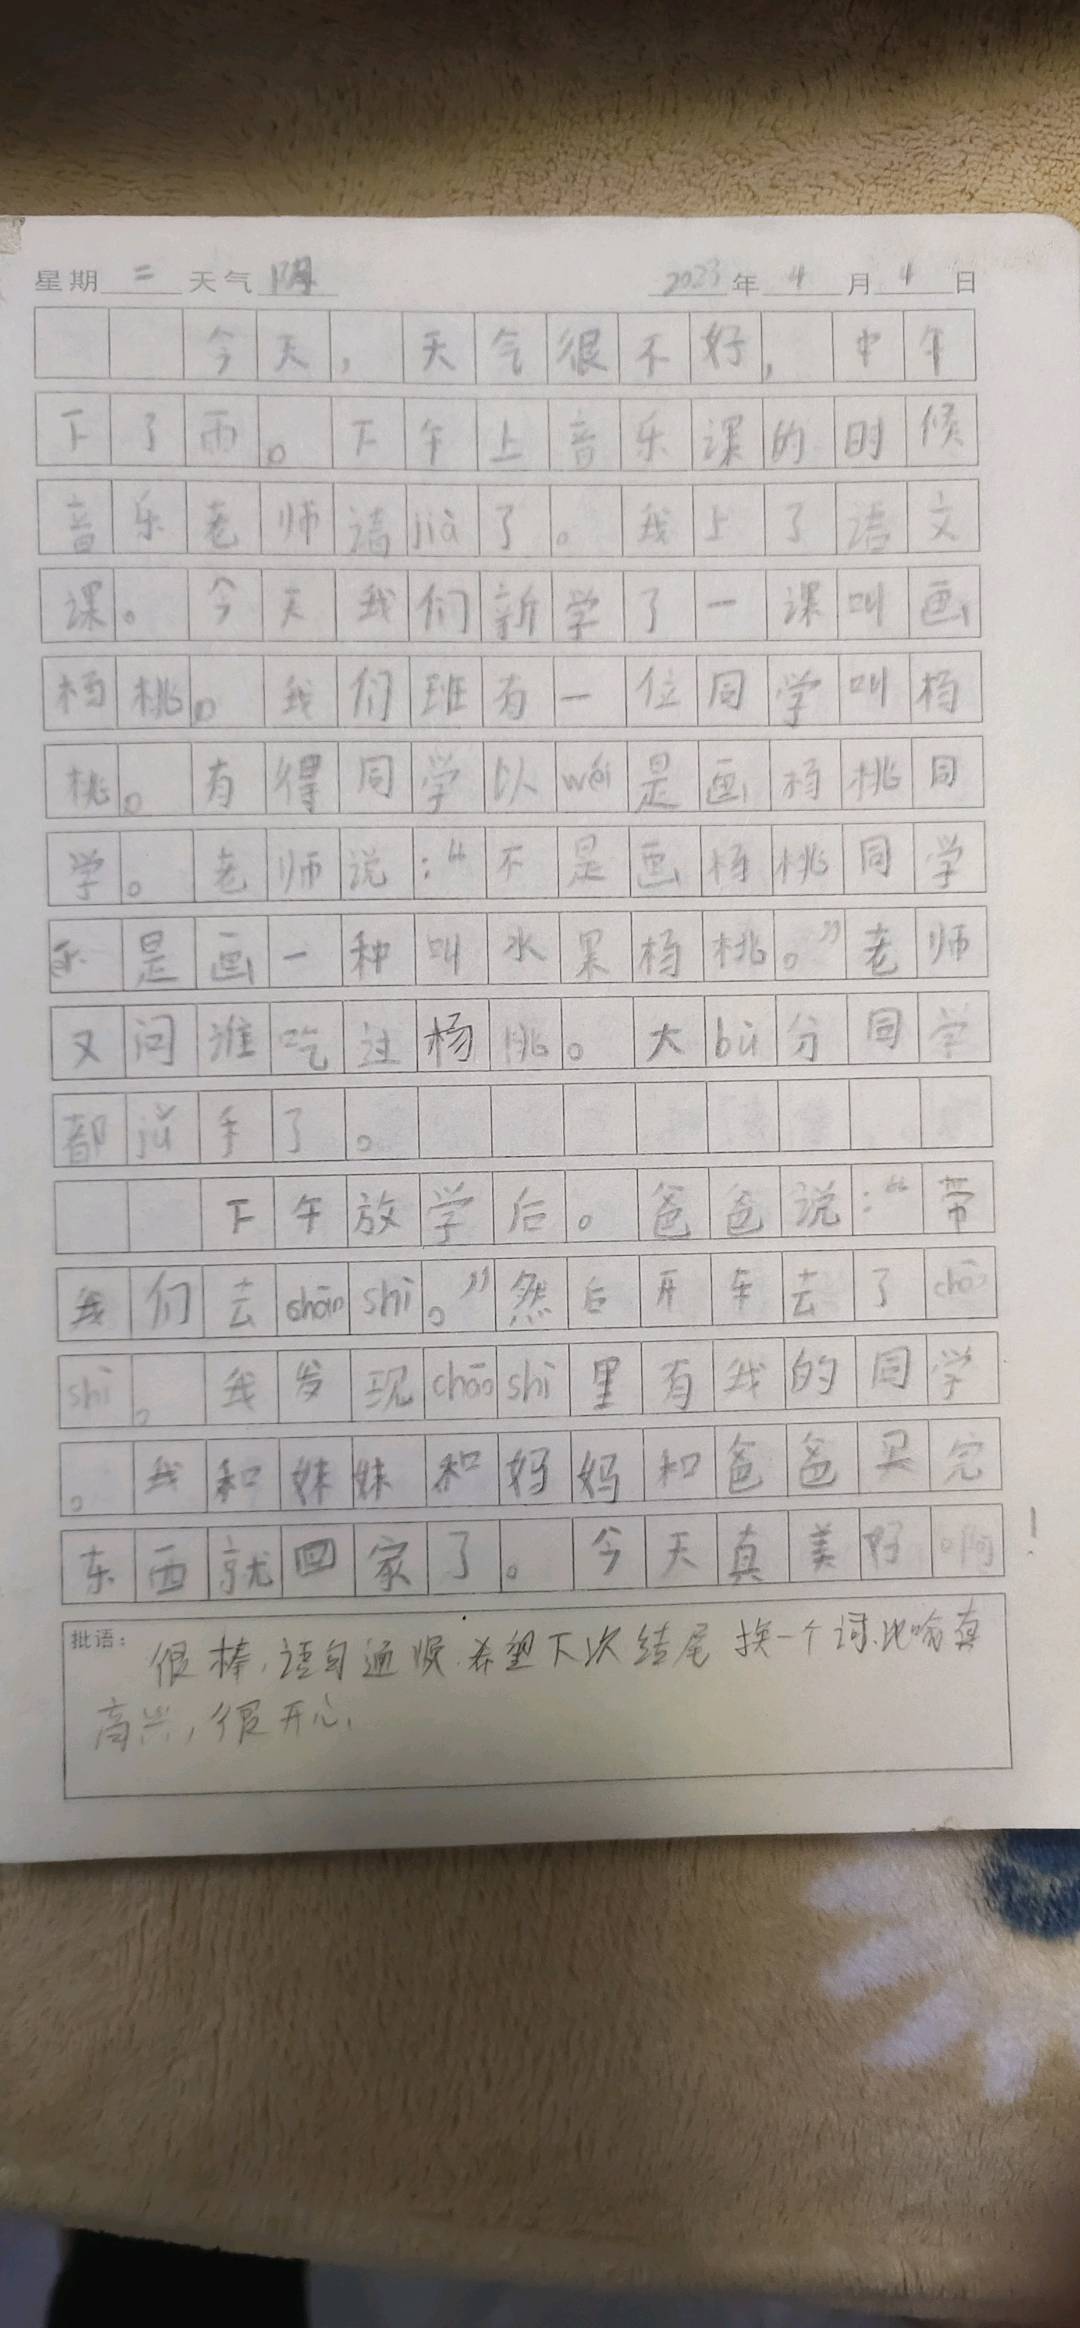 星期二 天气阴 2023年4月4日
今天，天气很不好，中午
下了雨。下午上音乐课的时候
音乐老师请jià了。我上了语文
课。今天我们新学了一课叫画
杨桃。我们班有一位同学叫杨
桃。有得同学以wéi是画杨桃同
学。老师说：“不是画杨桃同学
是画一种叫水果杨桃。”老师
又问谁吃过杨桃。大bù分同学
都jǔ手了。
下午放学后。爸爸说：“带
我们去shāo shì。”然后开车去了chāo
shì。我发现chāo shì里有我的同学
。我和妹妹和妈妈和爸爸买完
东西就回家了。今天真美好啊
！
批语：很棒，语句通顺。希望下次结尾换一个词，比喻真
高兴，很开心，